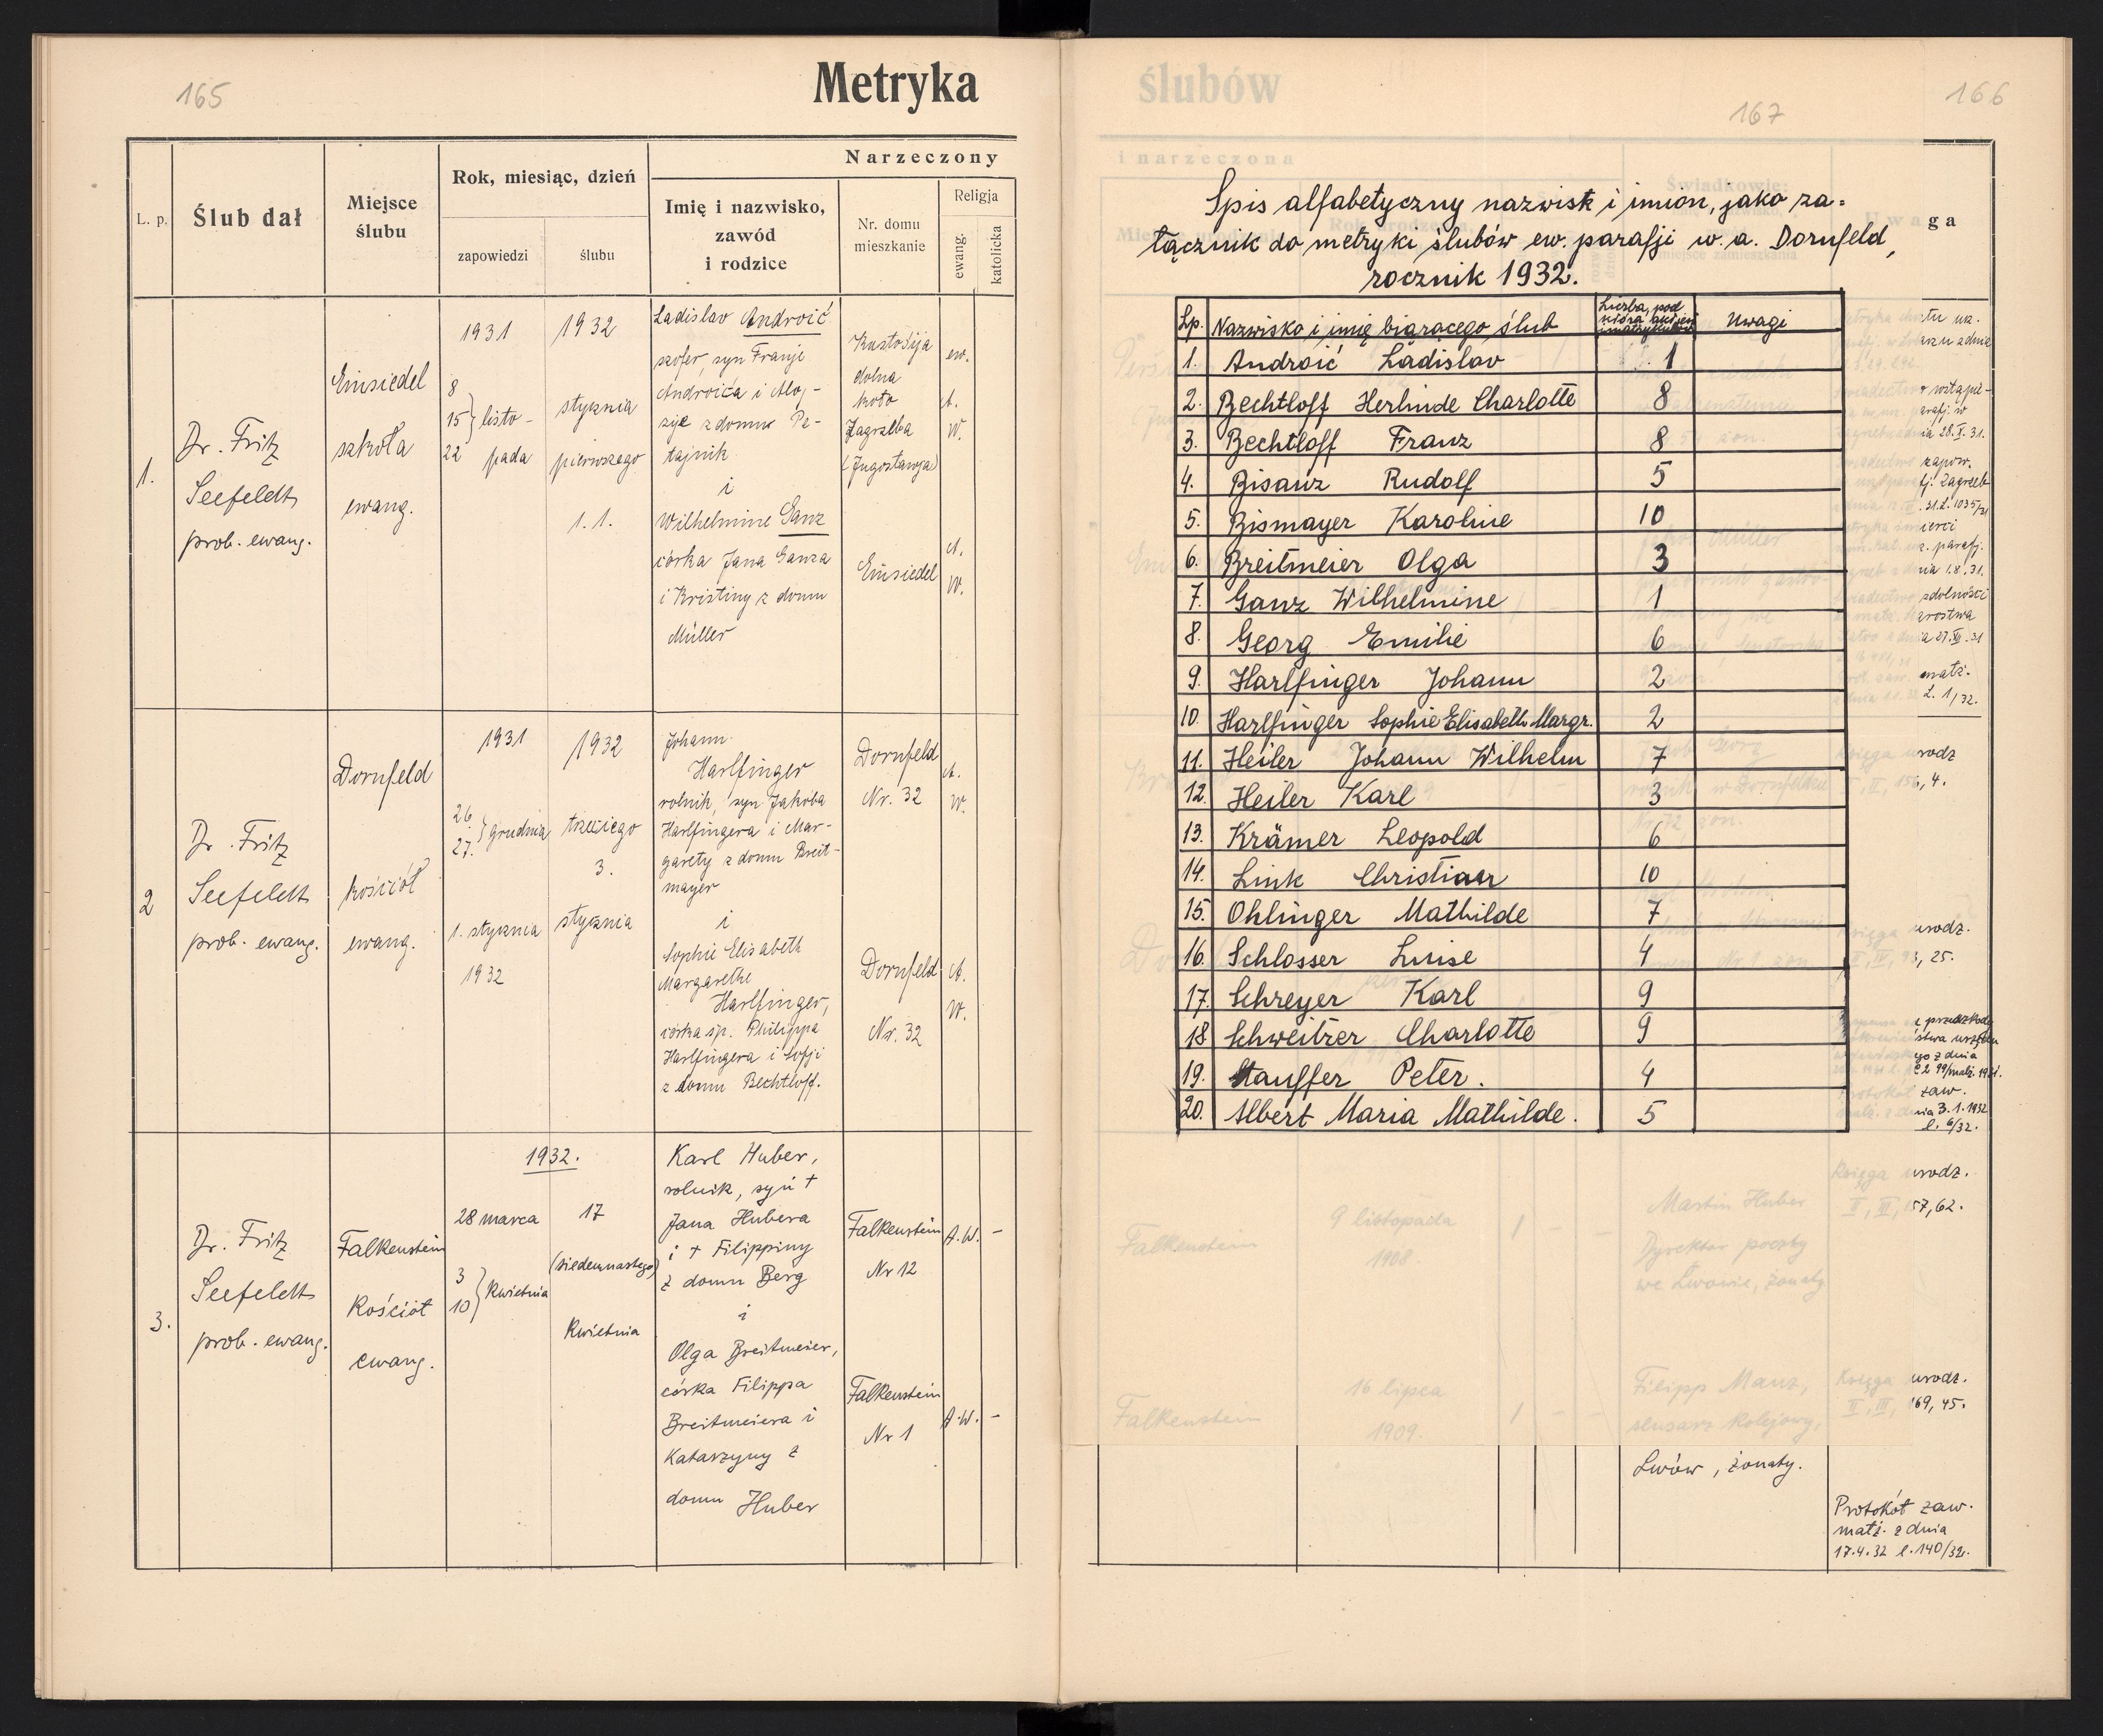 165
Metryka
L. p.
Ślub dał
Miejsce
ślubu
Rok, miesiąc, dzień
zapowiedzi
ślubu
Narzeczony
Imię i nazwisko,
zawód
i rodzice
Nr. domu
mieszkanie
Religja
ewang.
katolicka
1.
Dr. Fritz
Seefeldt
prob. ewang.
Einsiedel
szkoła
ewang.
1931
8
15 } listo-
22 pada
1932
stycznia
pierwszego
1. 1.
Ladislav Androić
szofer, syn Franje
Androića i Aloj-
zije z domu Pe-
tajnik
i
Wilhelmine Ganz
córka Jana Ganza
i Kristiny z domu
Müller
Kustošija
dolna
koło
Zagrzeba
(Jugosławja)
Einsiedel
ew.
A.
W.
A.
W.
2
Dr. Fritz
Seefeldt
prob. ewang.
Dornfeld
kościół
ewang.
1931
26.
27. } grudnia
1. stycznia
1932
1932
trzeciego
3.
stycznia
Johann
Harlfinger
rolnik, syn Jakóba
Harlfingera i Mar-
garety z domu Breit-
mayer
i
Sophie Elisabeth
Margarethe
Harlfinger,
córka śp. Philippa
Harlfingera i Sofji
z domu Bechtloff.
Dornfeld
Nr. 32
Dornfeld
Nr. 32
A.
W.
A.
W.
3.
Dr. Fritz
Seefeldt
prob. ewang.
Falkenstein
Kościół
ewang.
1932.
28 marca
3
10 } Kwietnia
17
(siedemnastego)
Kwietnia
Karl Huber,
rolnik, syn +
Jana Hubera
i + Filippiny
z domu Berg
i
Olga Breitmeier,
córka Filippa
Breitmeiera i
Katarzyny z
domu Huber
Falkenstein
Nr 12
Falkenstein
Nr 1
A.W. -
A.W. -
ślubów
166
167
i narzeczona
Świadkowie:
Uwaga
Spis alfabetyczny nazwisk i imion, jako za-
łącznik do metryki ślubów ew. parafji w. a. Dornfeld,
rocznik 1932.
Lp. Nazwisko i imię biorącego ślub Liczba, pod Uwagi
1. Androić Ladislav 1
2. Bechtloff Herlinde Charlotte 8
3. Bechtloff Franz 8
4. Bisanz Rudolf 5
5. Bismayer Karoline 10
6. Breitmeier Olga 3
7. Ganz Wilhelmine 1
8. Georg Emilie 6
9. Harlfinger Johann 2
10. Harlfinger Sophie Elisabeth Margr. 2
11. Heiler Johann Wilhelm 7
12. Heiler Karl 3
13. Krämer Leopold 6
14. Link Christian 10
15. Ohlinger Mathilde 7
16. Schlosser Luise 4
17. Schreyer Karl 9
18 Schweitzer Charlotte 9
19. Stauffer Peter. 4
20. Albert Maria Mathilde. 5
Falkenstein
9 listopada
1908.
1
Martin Huber
Dyrektor poczty
we Lwowie, żonaty
Księga urodz.
II, III, 157, 62.
Falkenstein
16 lipca
1909.
1
Filipp Manz,
ślusarz kolejowy,
Lwów, żonaty.
Księga urodz.
II, III, 169, 45.
Protokół zaw.
małż. z dnia
17.4.32 l. 140/32.